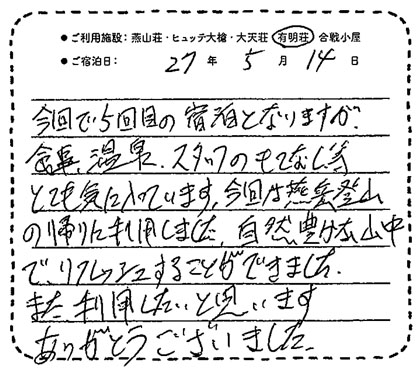 ●ご利用施設：燕山荘・ヒュッテ大槍・大天荘・有明荘・合戦小屋
●ご宿泊日： 27 年 5 月 14 日
今回で5回目の宿泊となりますが、
食事、温泉、スタッフのもてなし等
とても気に入っています。今回は燕岳登山
の帰りに利用しました。自然豊かな山中
で、リフレッシュすることができました。
また利用したいと思います
ありがとうございました。